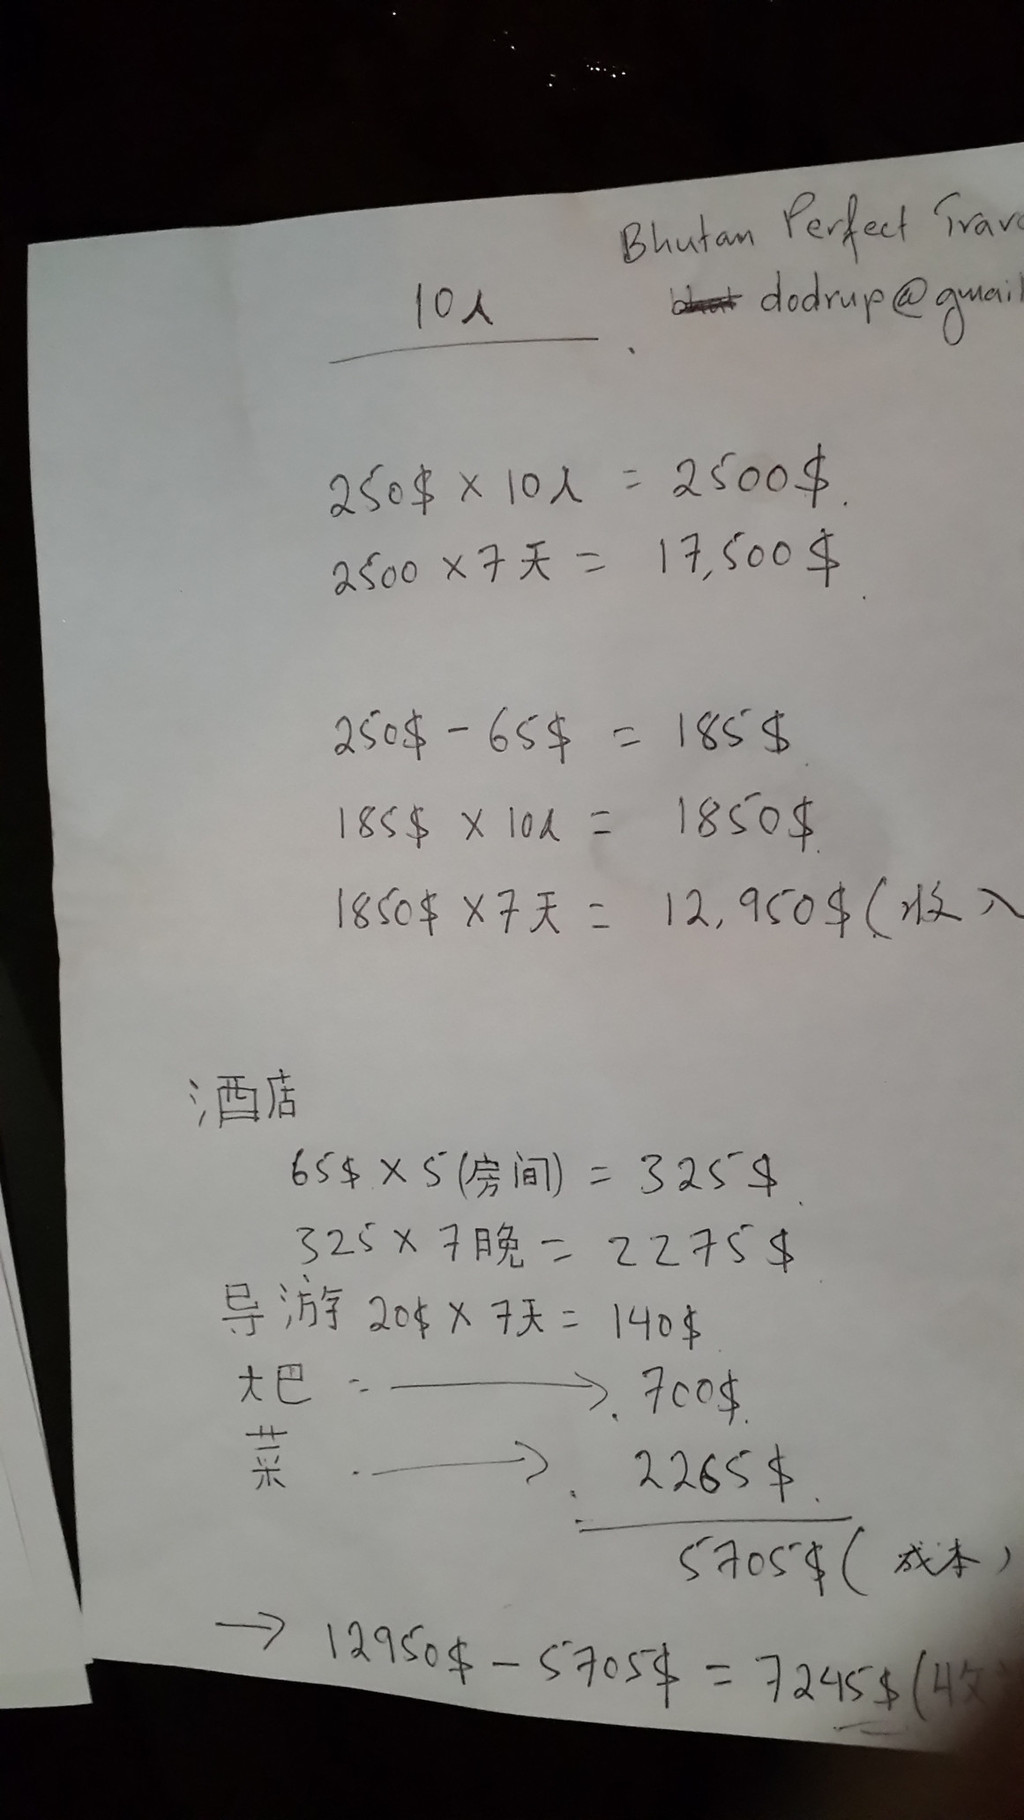 Bhutan Perfect
dodrup@gmail
10人
250$ × 10人 = 2500$.
2500 × 7天 = 17,500$
250$ - 65$ = 185$
185$ × 10人 = 1850$.
1850$ × 7天 = 12,950$ (收入
酒店
65$ × 5 (房间) = 325$
325 × 7晚 = 2275$
导游 20$ × 7天 = 140$
大巴 = → 700$.
菜 → 2265$.
5705$ (成本)
→ 12950$ - 5705$ = 7245$ (收